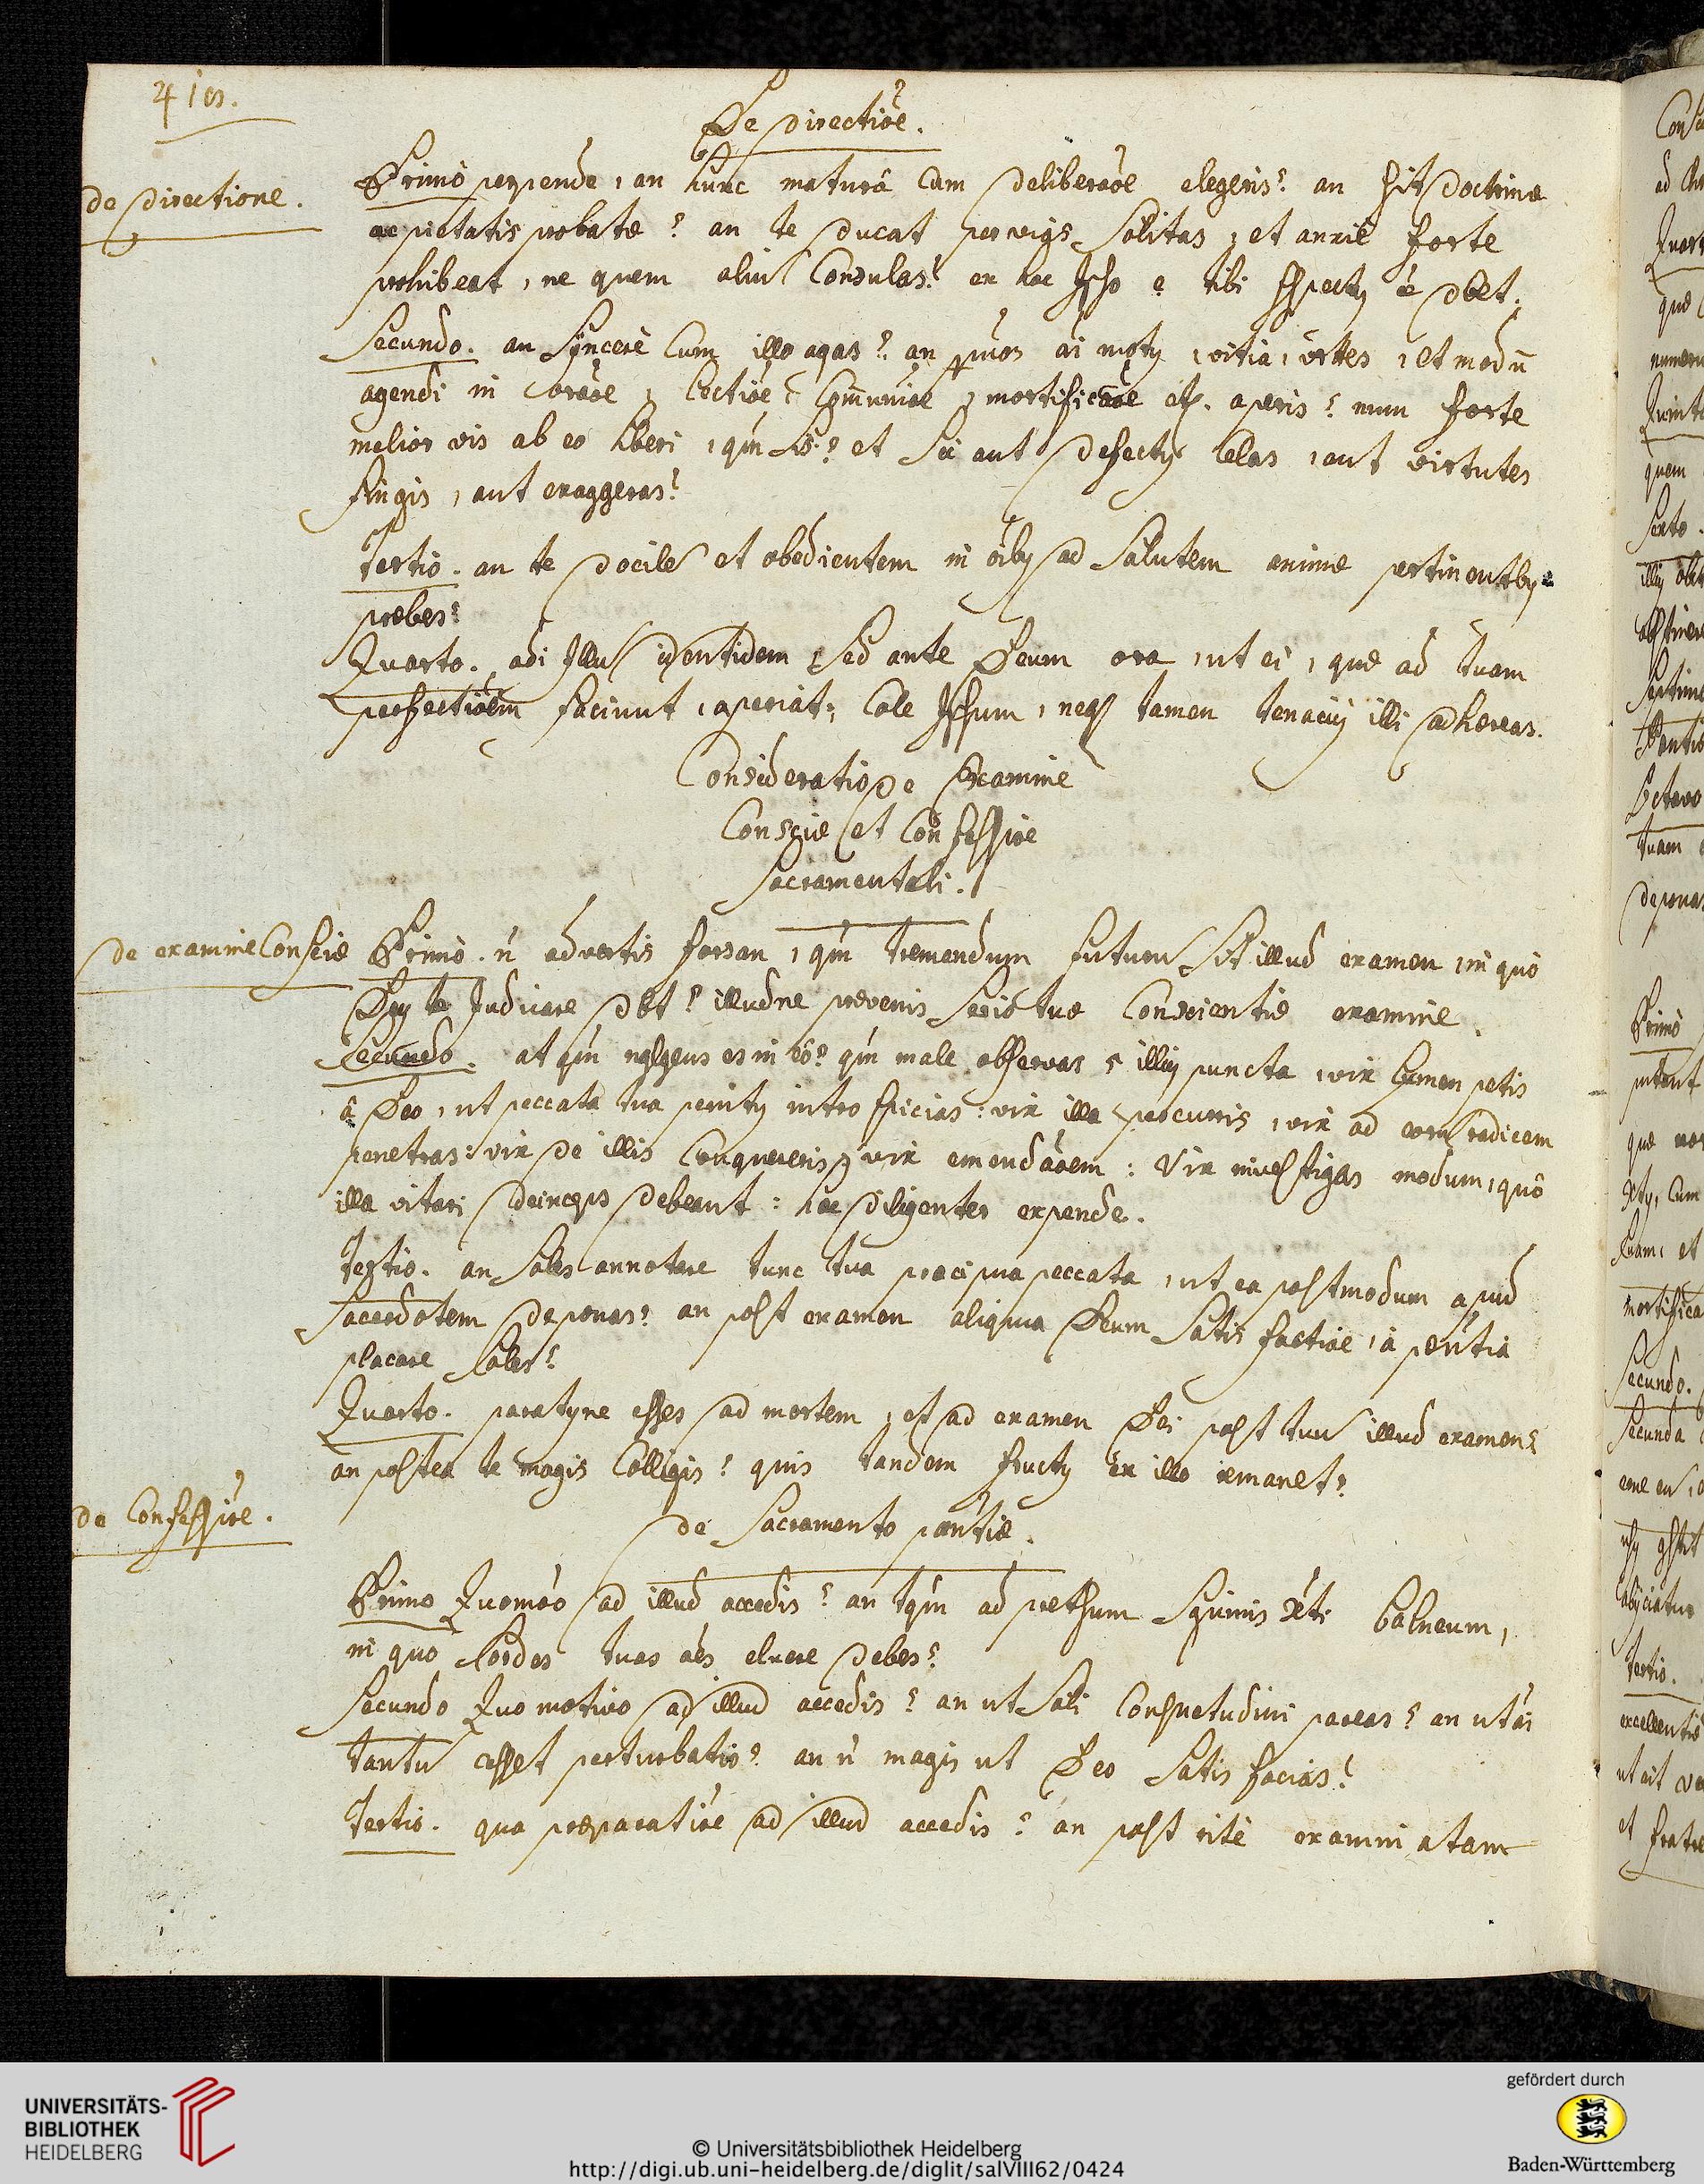 410.
De Directiōe.
de Directione.
Primò perpende, an hunc maturâ cum deliberāōe elegeris? an sit doctrinæ
ac pietatis probatæ? an te ducat per vias solitas, et anxiè forte
prohibeat, ne quem aliū consulas? ex hoc ipso
Secundo. an syncerè cum illo agas? an motus, vitia, virtes, et modū
agendi in orāōe, lectiōe, Com̄uniōe, mortificāōe etc. aperis? num forte
melior vis ab eo haberi, qm̄ sis? et sic aut defectus celas, aut virtutes
fingis, aut exaggeras?
Tertio. an te docilē et obedientem in oībus ad salutem animæ pertinentibus
præbes?
Quarto. adi illū identidem, sed ante Deum ora, ut ei, quæ ad tuam
perfectiōem faciunt, aperiat; cole ipsum, neque tamen tenacius illi adhæreas.
Consideratio de Examine
Consciæ et Confessiōe
Sacramentali.
de examine Consciæ
Primò. n̄ advertis forsan, qm̄ tremendum futurū sit illud examen, in quô
Deus te judicare dēt? illudne prævenis serio tuæ conscientiæ examine.
Secundo. at qm̄ negligens es in eô? qm̄ male observas 5 illius puncta, vix lumen petis
â Deo, ut peccata tua penitus introspicias: vix illa percurris, vix ad eorū radicem
penetras: vix de illis conquereris, vix emendāōem: Vix investigas modum, quô
illa vitari deinceps debeant: hæc diligenter expende.
Tertio. an soles annotare tunc tua præcipua peccata, ut ea postmodum apud
Sacerdotem deponas? an post examen aliqua Deum satisfactiōe, à pœn̄tia
placare soles?
Quarto. paratusne esses ad mortem, et ad examen Dei post tuū illud examen?
an postea te magis colligis? quis tandem fructus ex illo remanet?
de Confessiōe.
de Sacramento pœn̄tiæ.
Primo Quomō̄o ad illud accedis? an tqm̄ ad Sguinis Xti balneum,
in quo sordes tuas ōēs eluere debes?
Secundo Quo motivo ad illud accedis? an ut soli consuetudini pareas? an ut aī
tantū cesset perturbatio? an n̄ magis ut Deo satisfacias?
Tertio. qua præparatiōe ad illud accedis? an post ritè examinatam
UNIVERSITÄTS-
BIBLIOTHEK
HEIDELBERG
© Universitätsbibliothek Heidelberg
http://digi.ub.uni-heidelberg.de/diglit/salVIII62/0424
gefördert durch
Baden-Württemberg